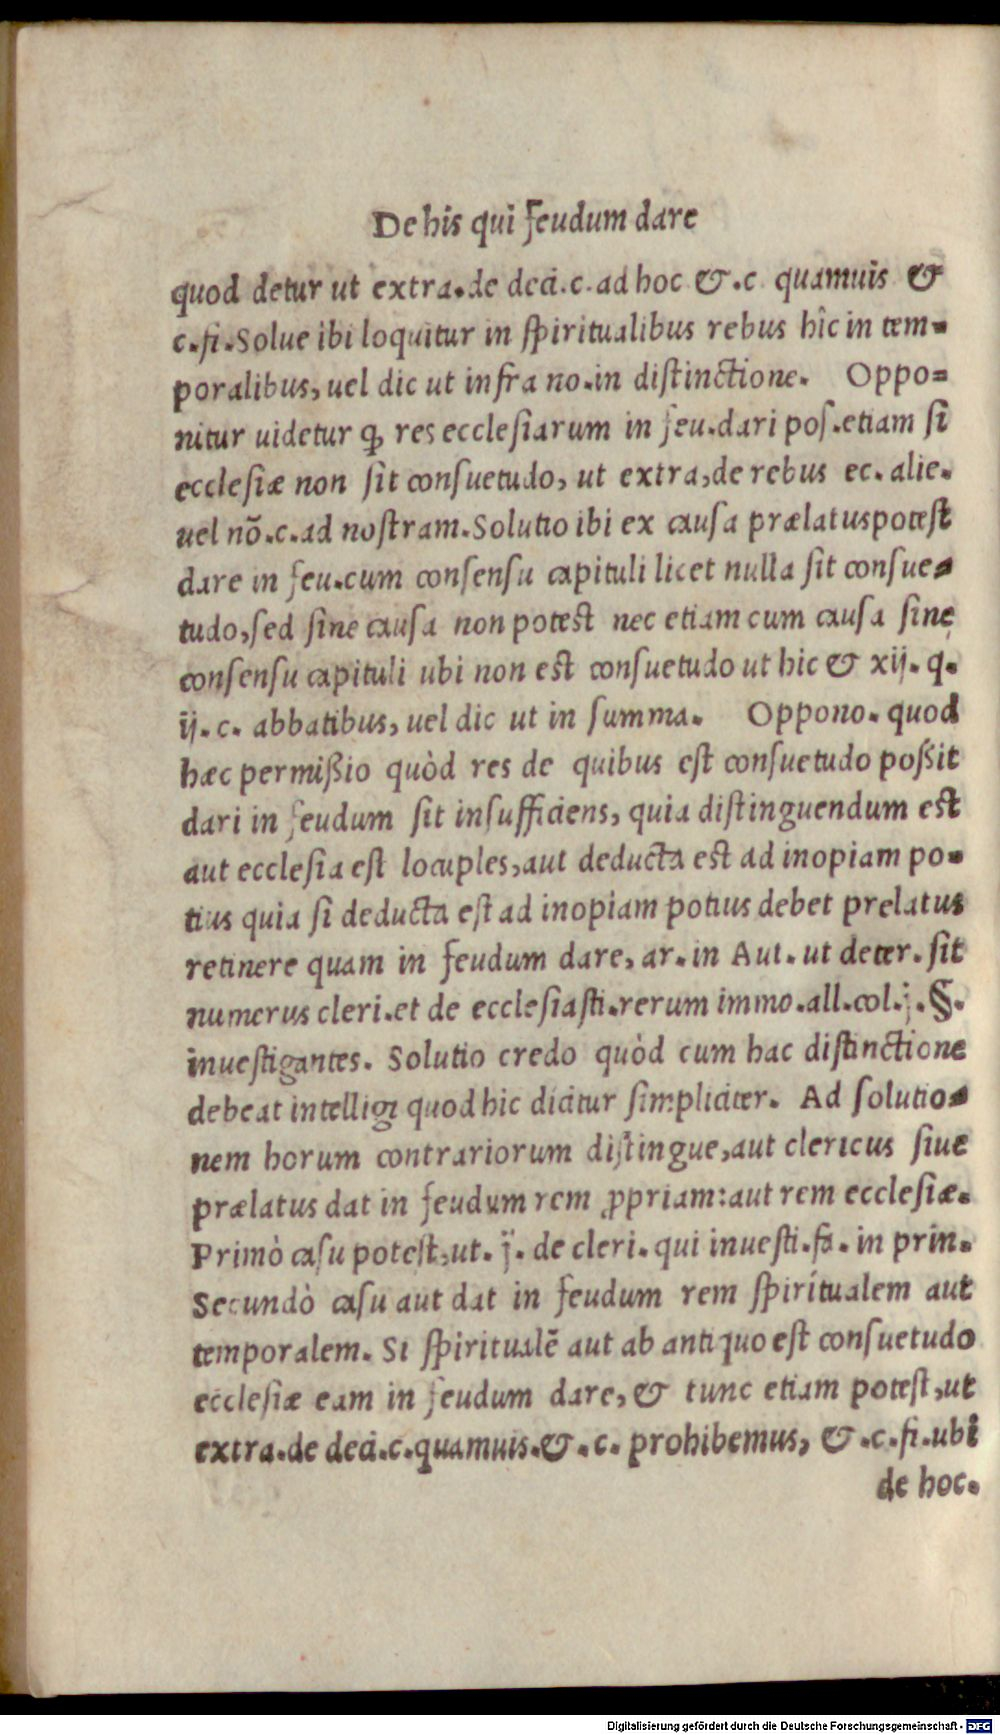 De his qui feudum dare
quod detur ut extra.de deci.c.ad hoc &.c quamuis &
c.fi.Solue ibi loquitur in spiritualibus rebus hîc in tem-
poralibus, uel dic ut infra no.in distinctione. Oppo-
nitur uidetur ꝙ res ecclesiarum in feu.dari pos.etiam si
ecclesiæ non sit consuetudo, ut extra,de rebus ec. alie.
uel nõ.c.ad nostram.Solutio ibi ex causa prælatus potest
dare in feu.cum consensu capituli licet nulla sit consue-
tudo,sed sine causa non potest nec etiam cum causa sine
consensu capituli ubi non est consuetudo ut hic & xij. q.
ij. c. abbatibus, uel dic ut in summa. Oppono. quod
hæc permißio quòd res de quibus est consuetudo poßit
dari in feudum sit insufficiens, quia distinguendum est
aut ecclesia est locuples,aut deducta est ad inopiam po-
tius quia si deducta est ad inopiam potius debet prelatus
retinere quam in feudum dare, ar.in Aut. ut deter.sit
numerus cleri.et de ecclesiasti.rerum immo.all.col.j.§.
inuestigantes. Solutio credo quòd cum hac distinctione
debeat intelligi quod hic dicitur simpliciter. Ad solutio-
nem horum contrariorum distingue,aut clericus siue
prælatus dat in feudum rem ꝓpriam:aut rem ecclesiæ.
Primò casu potest,ut. j. de cleri. qui inuesti.fa. in prin.
Secundò casu aut dat in feudum rem spiritualem aut
temporalem. Si spiritualẽ aut ab antiquo est consuetudo
ecclesiæ eam in feudum dare, & tunc etiam potest,ut
extra.de deci.c.quamuis.&.c. prohibemus, &.c.fi.ubi
de hoc.
Digitalisierung gefördert durch die Deutsche Forschungsgemeinschaft - DFG